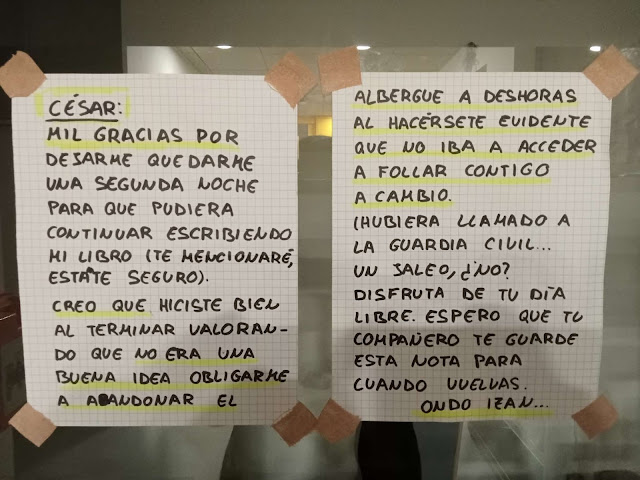 CÉSAR:
MIL GRACIAS POR
DEJARME QUEDARME
UNA SEGUNDA NOCHE
PARA QUE PUDIERA
CONTINUAR ESCRIBIENDO
MI LIBRO (TE MENCIONARÉ,
ESTATE SEGURO).
CREO QUE HICISTE BIEN
AL TERMINAR VALORAN-
DO QUE NO ERA UNA
BUENA IDEA OBLIGARME
A ABANDONAR EL
ALBERGUE A DESHORAS
AL HACÉRSETE EVIDENTE
QUE NO IBA A ACCEDER
A FOLLAR CONTIGO
A CAMBIO.
(HUBIERA LLAMADO A
LA GUARDIA CIVIL...
UN JALEO, ¿NO?
DISFRUTA DE TU DÍA
LIBRE. ESPERO QUE TU
COMPAÑERO TE GUARDE
ESTA NOTA PARA
CUANDO VUELVAS.
ONDO IZAN...